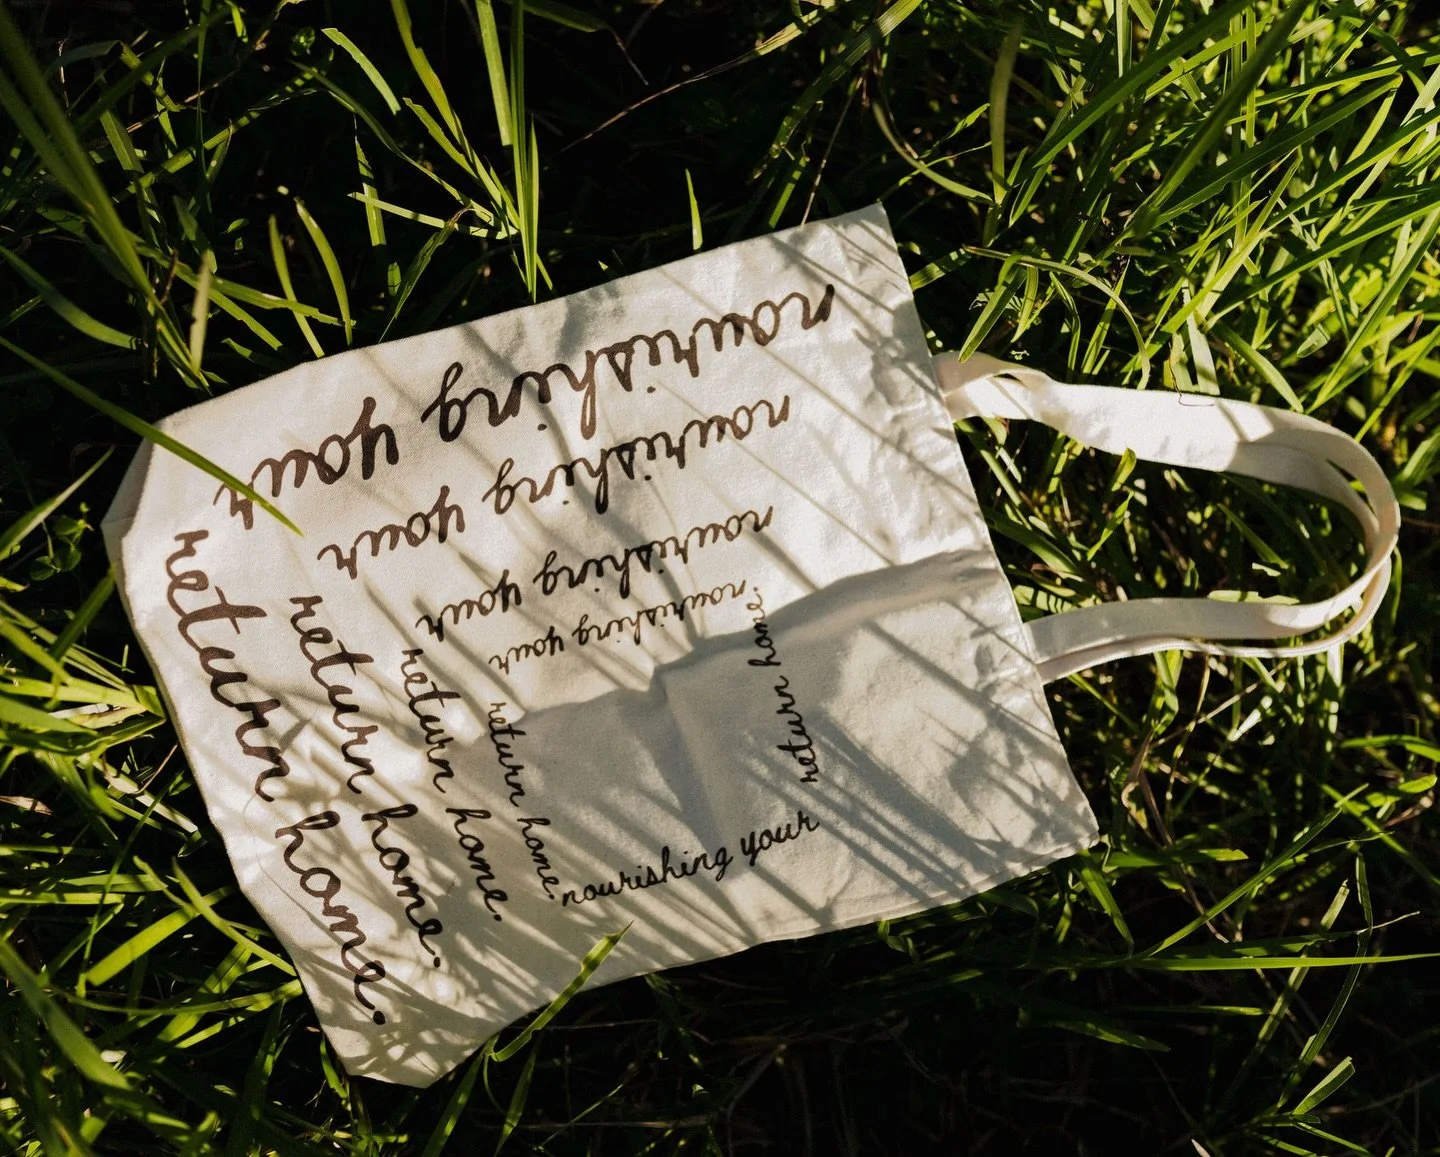 nourishing your
return home.
nourishing your
return home.
nourishing your
return home.
nourishing your
return home.
nourishing your
return home.